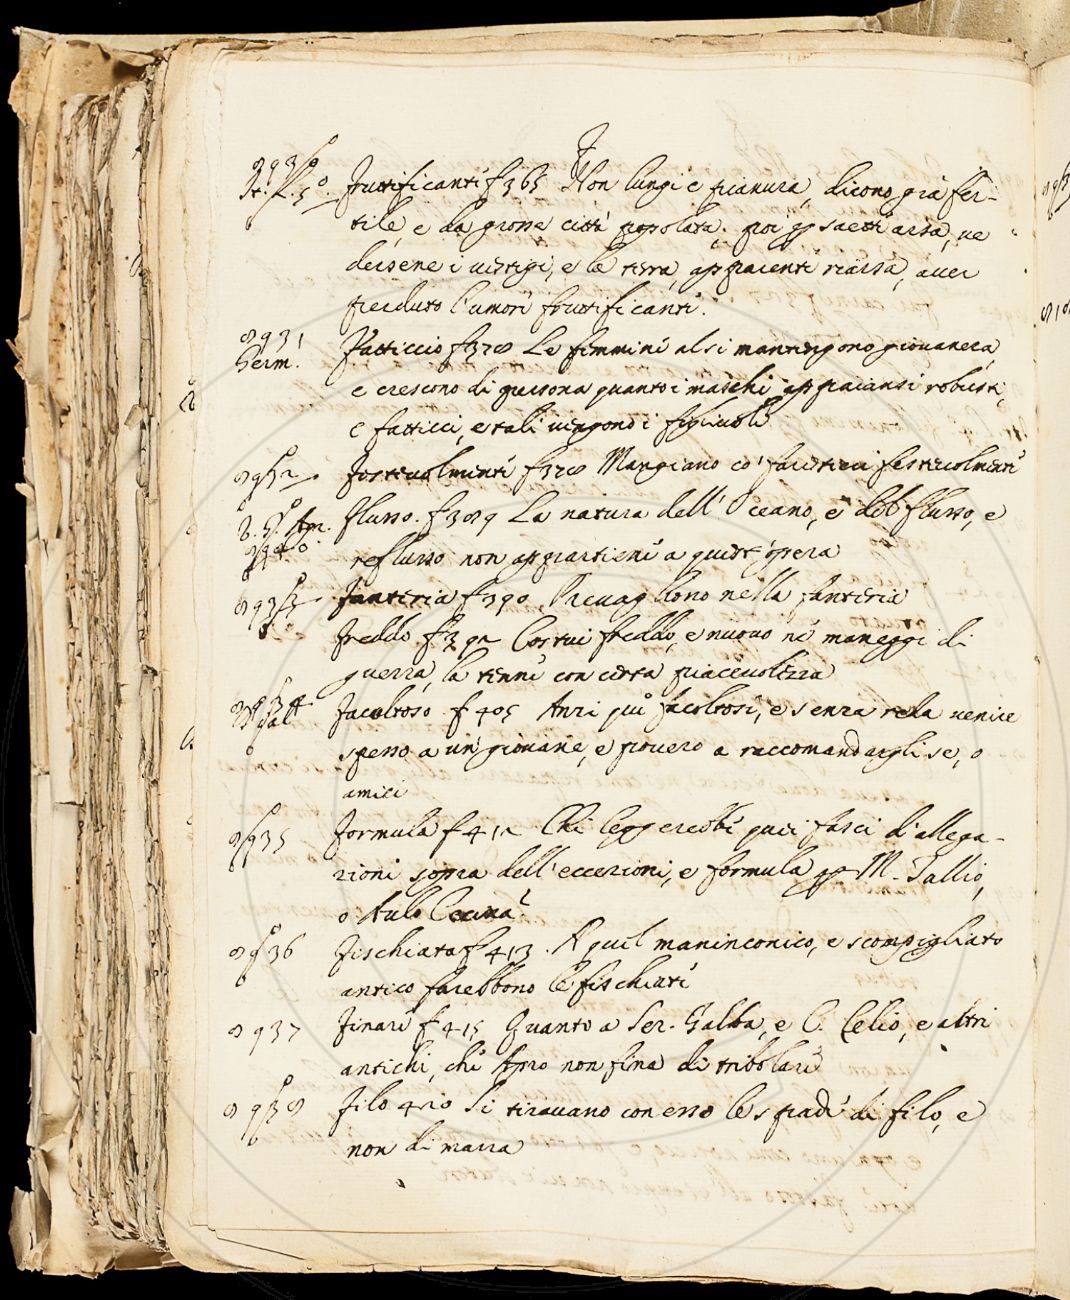 F
8930 Fruttificanti f 365 Non lungi è pianura, dicono già fer-
St. L. 5°. tile, e da grosse città popolata; poi p saette arsa, ve
dersene i vestigi, e la terra, appariente riarsa, aver
perduto l'umore fruttificante.
8931 Fatticcio f 378 Le femmine alsi mantengono giovanezza,
Germ. e crescono di persona quanto i maschi appaiansi robusti,
e fatticci, e tali vengono i figliuoli
8932 Festevolmente f 378 Mangiano co' festevolmente
V. G. Agr. flusso. f 389 La natura dell' Oceano, e del flusso, e
reflusso non appartiene a quest'opera
8933 fanteria f 390 Prevagliono nella fanteria
freddo f 392 Costui freddo, e nuovo ne maneggi di
guerra, la tenne con certa piacevolezza
8934 facoltoso f 405 Anzi più facoltosi, e senza reda venire
spesso a un giovane, e povero a raccomandarglise, o
amici
8935 formula f 412 Chi leggerebbe quei fasci d'allega-
zioni sopra dell'eccezioni, e formula p M. Tullio,
o Aulo Cecina?
8936 Fischiata f 413. A quel maninconico, e scompigliato
antico farebbono le fischiate
8937 Finare f 415 Quanto a Ser. Galba, e C. Celio, e altri
antichi, che Apro non fina di tribolare
8938 Filo 420 Si tiravano con esso le spade di filo, e
non di marra